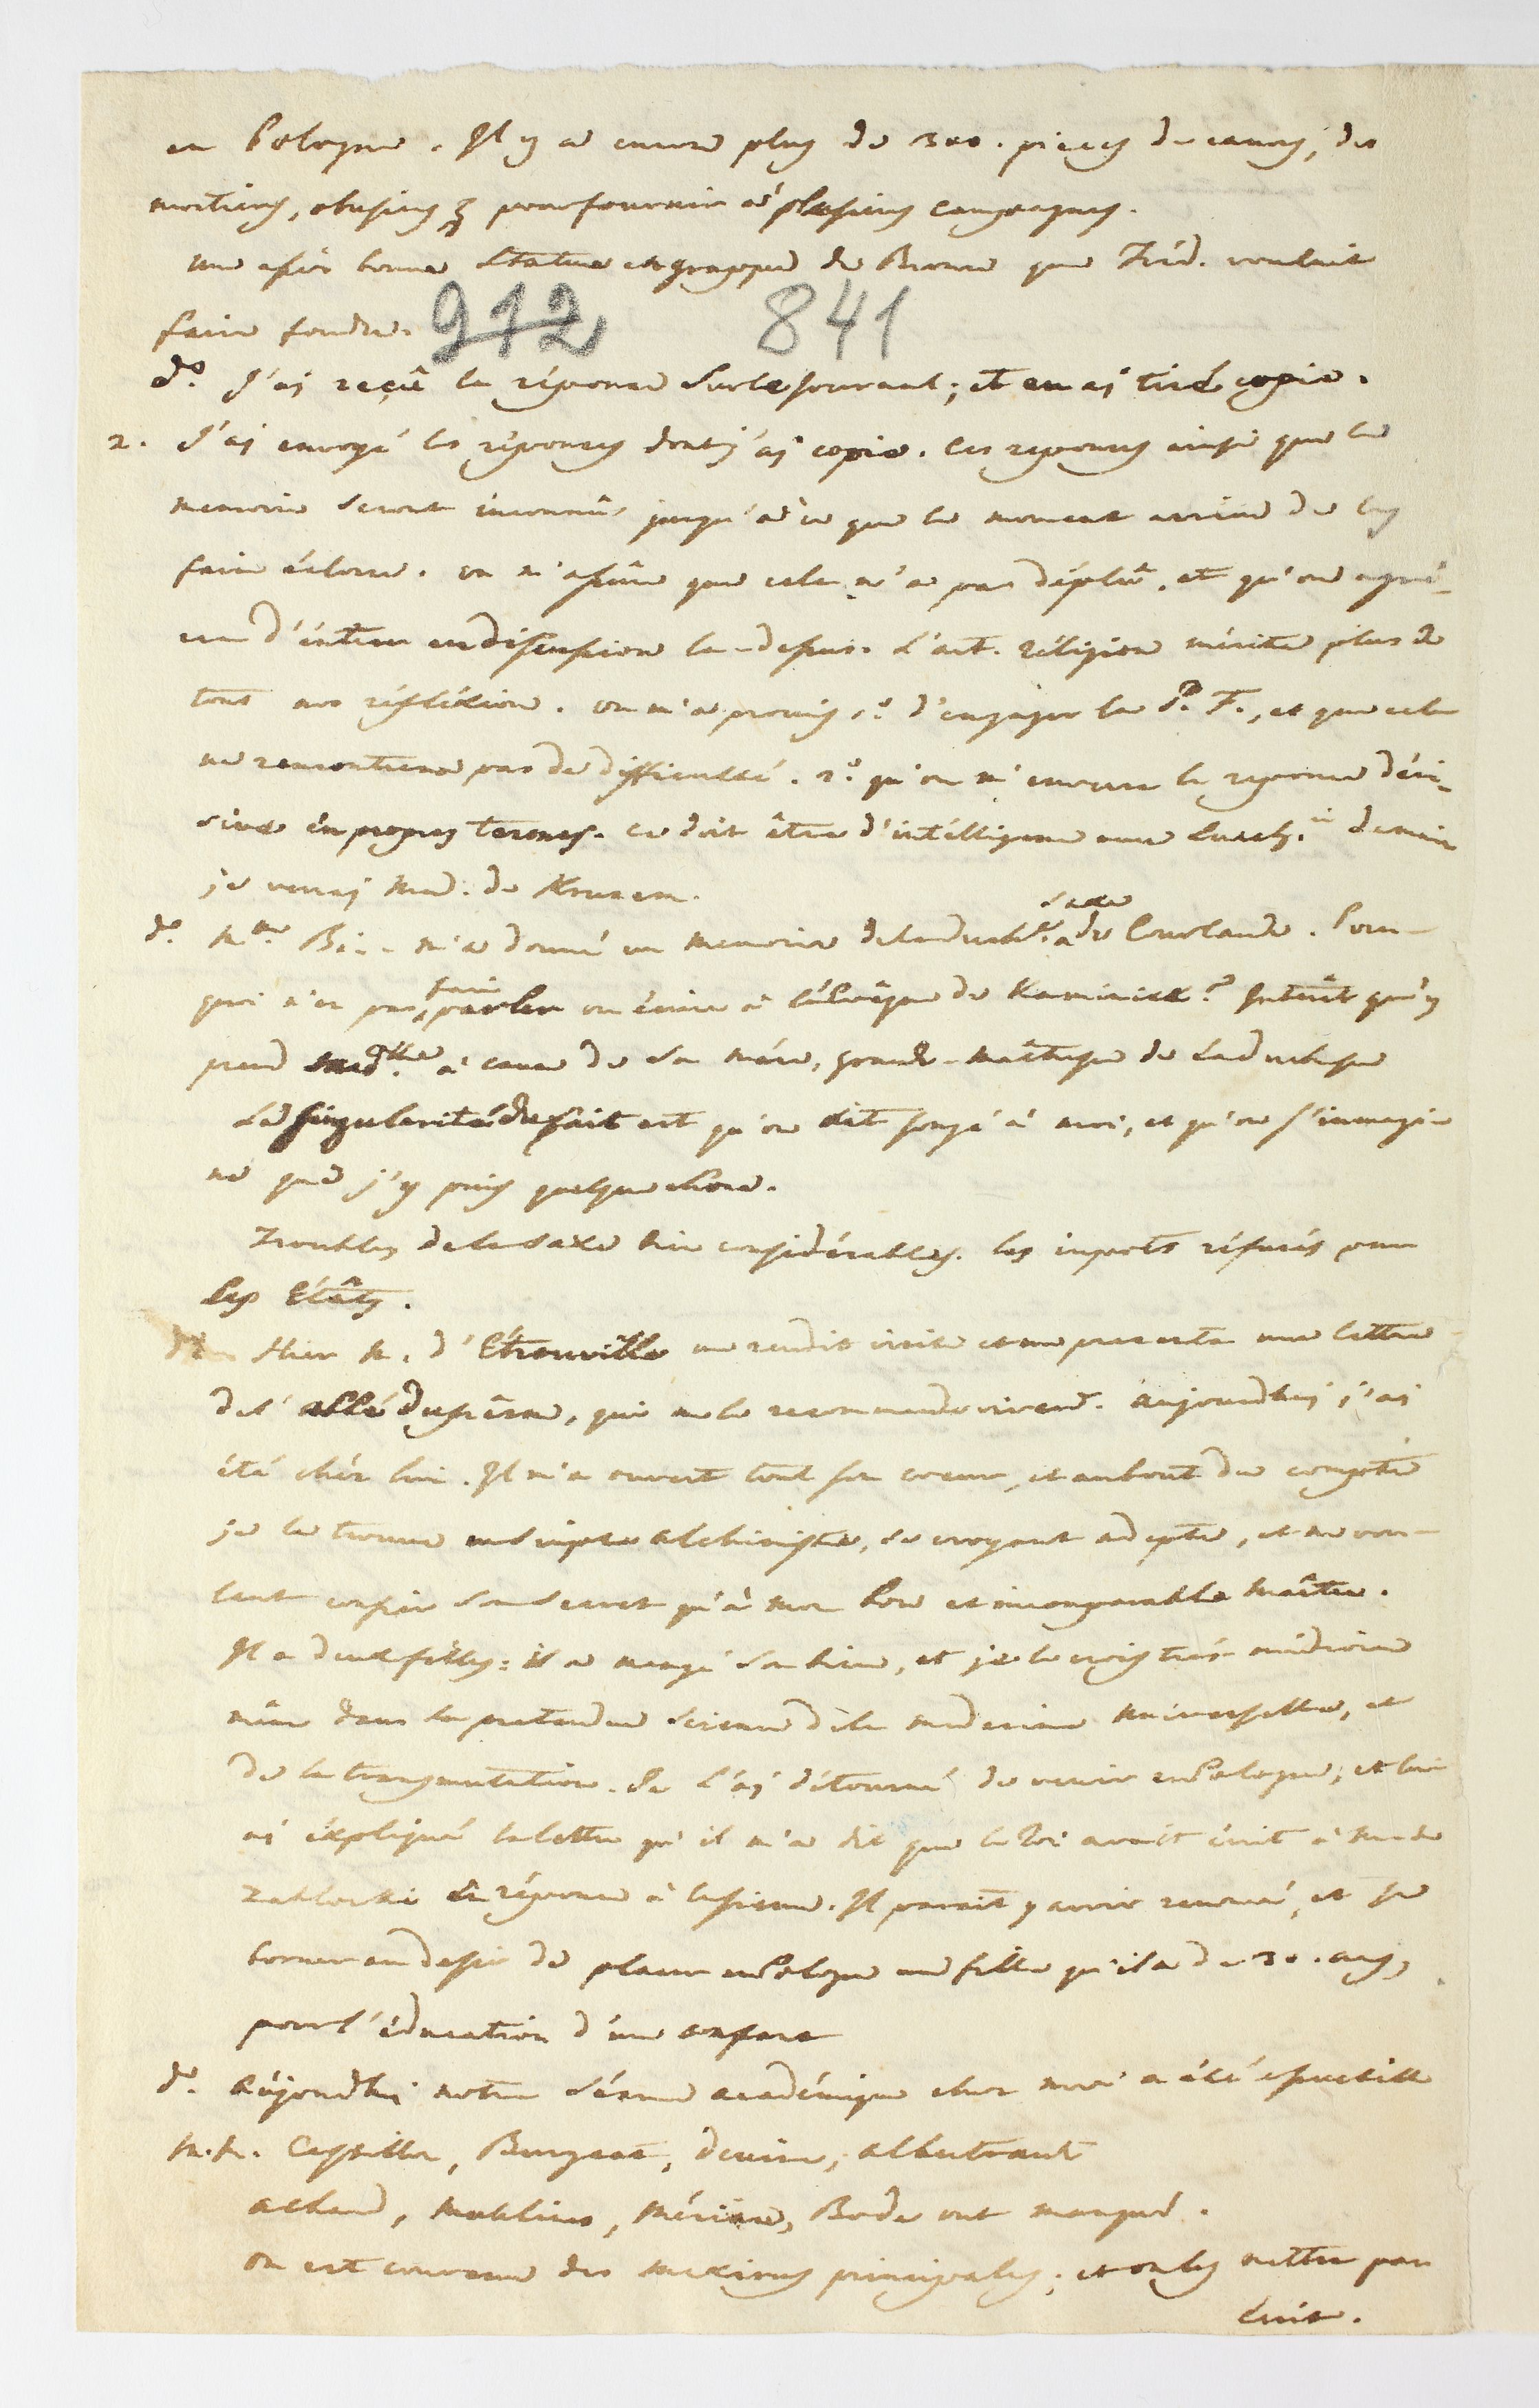 en Pologne. Il y a encore plus de 300. pieces de canons, des
mortiers, obusiers & pour fournir à plusieurs campagnes.
une assés bonne Statue en grouppe de Bronze que Fréd. vouloit
faire fondre. 912 841
d.o J'ai reçû la réponse sur le journal; et en ai tiré copie.
2. J'ai envoyé les réponses dont j'ai copie. Ces reponses ainsi que le
memoire seront inconnûs jusqu'à ce que le moment arrive de les
faire éclore. on m'assûre que cela n'a pas déplû, et qu'on agrée-
era d'éntrer en discussion la-dessus. L'art. réligion mérite plus de
tout nos réfléxions. on m'a promis 1.o d'engager la P. F., et que cela
ne rencontrera pas de difficulté. 2.o qu'on m'enverra la reponse déci-
sive en propres termes. ce doit être d'intélligence avec Lucch.ni demain
je verrai Mad. de Krusem.
d.o M.me Bi... m'a donné un memoire de la duch.e de Saxe Courlande. Pour-
quoi n'en pas faire parler ou écrire à l'évêque de Kaminiek? Interêt qu'y
prend mad.lle à cause de sa mére, grande-maîtresse de la duchesse
La singularité du fait est qu'on ait songé à moi, et qu'on s'imagi-
ne que j'y puis quelque chose.
Troubles de la Saxe bien considérables. les impots réfusés par
les Etâts.
d.o Hier M. d'Etrouville me rendit visite et me presenta une lettre
de l'abbé Duprêsne, qui me le recommande vivem.t. aujourdhui j'ai
été chéz lui. Il m'a ouvert tout son coeur, et au bout du compte
je le trouve un simple alchimiste, se croyant adepte, et ne vou-
lant confier son secret qu'à mon bon et incomparable Maître.
Il a deux filles: il a mangé son bien, et je le crois trés médiocre
même dans la pretendue science de la medecine universelle, et
de la transmutation. Je l'ai détourné de venir en Pologne, et lui
ai éxpliqué la lettre qu'il m'a dit que le Roi avait écrit à M. de
Zablocki en réponse à la sienne. Il parait y avoir renoncé, et se
borner au desir de placer en Pologne une fille qu'il a de 30. ans,
pour l'éducation d'un enfant
d.o Aujourdhui notre séance académique chez moi a été
M.M. Castillon, Burgsat, denina, albutrant
achard, Moulines, Mérian, Bode ont manqué.
on est convenu des maximes principales; et on les mettra par
écrit.